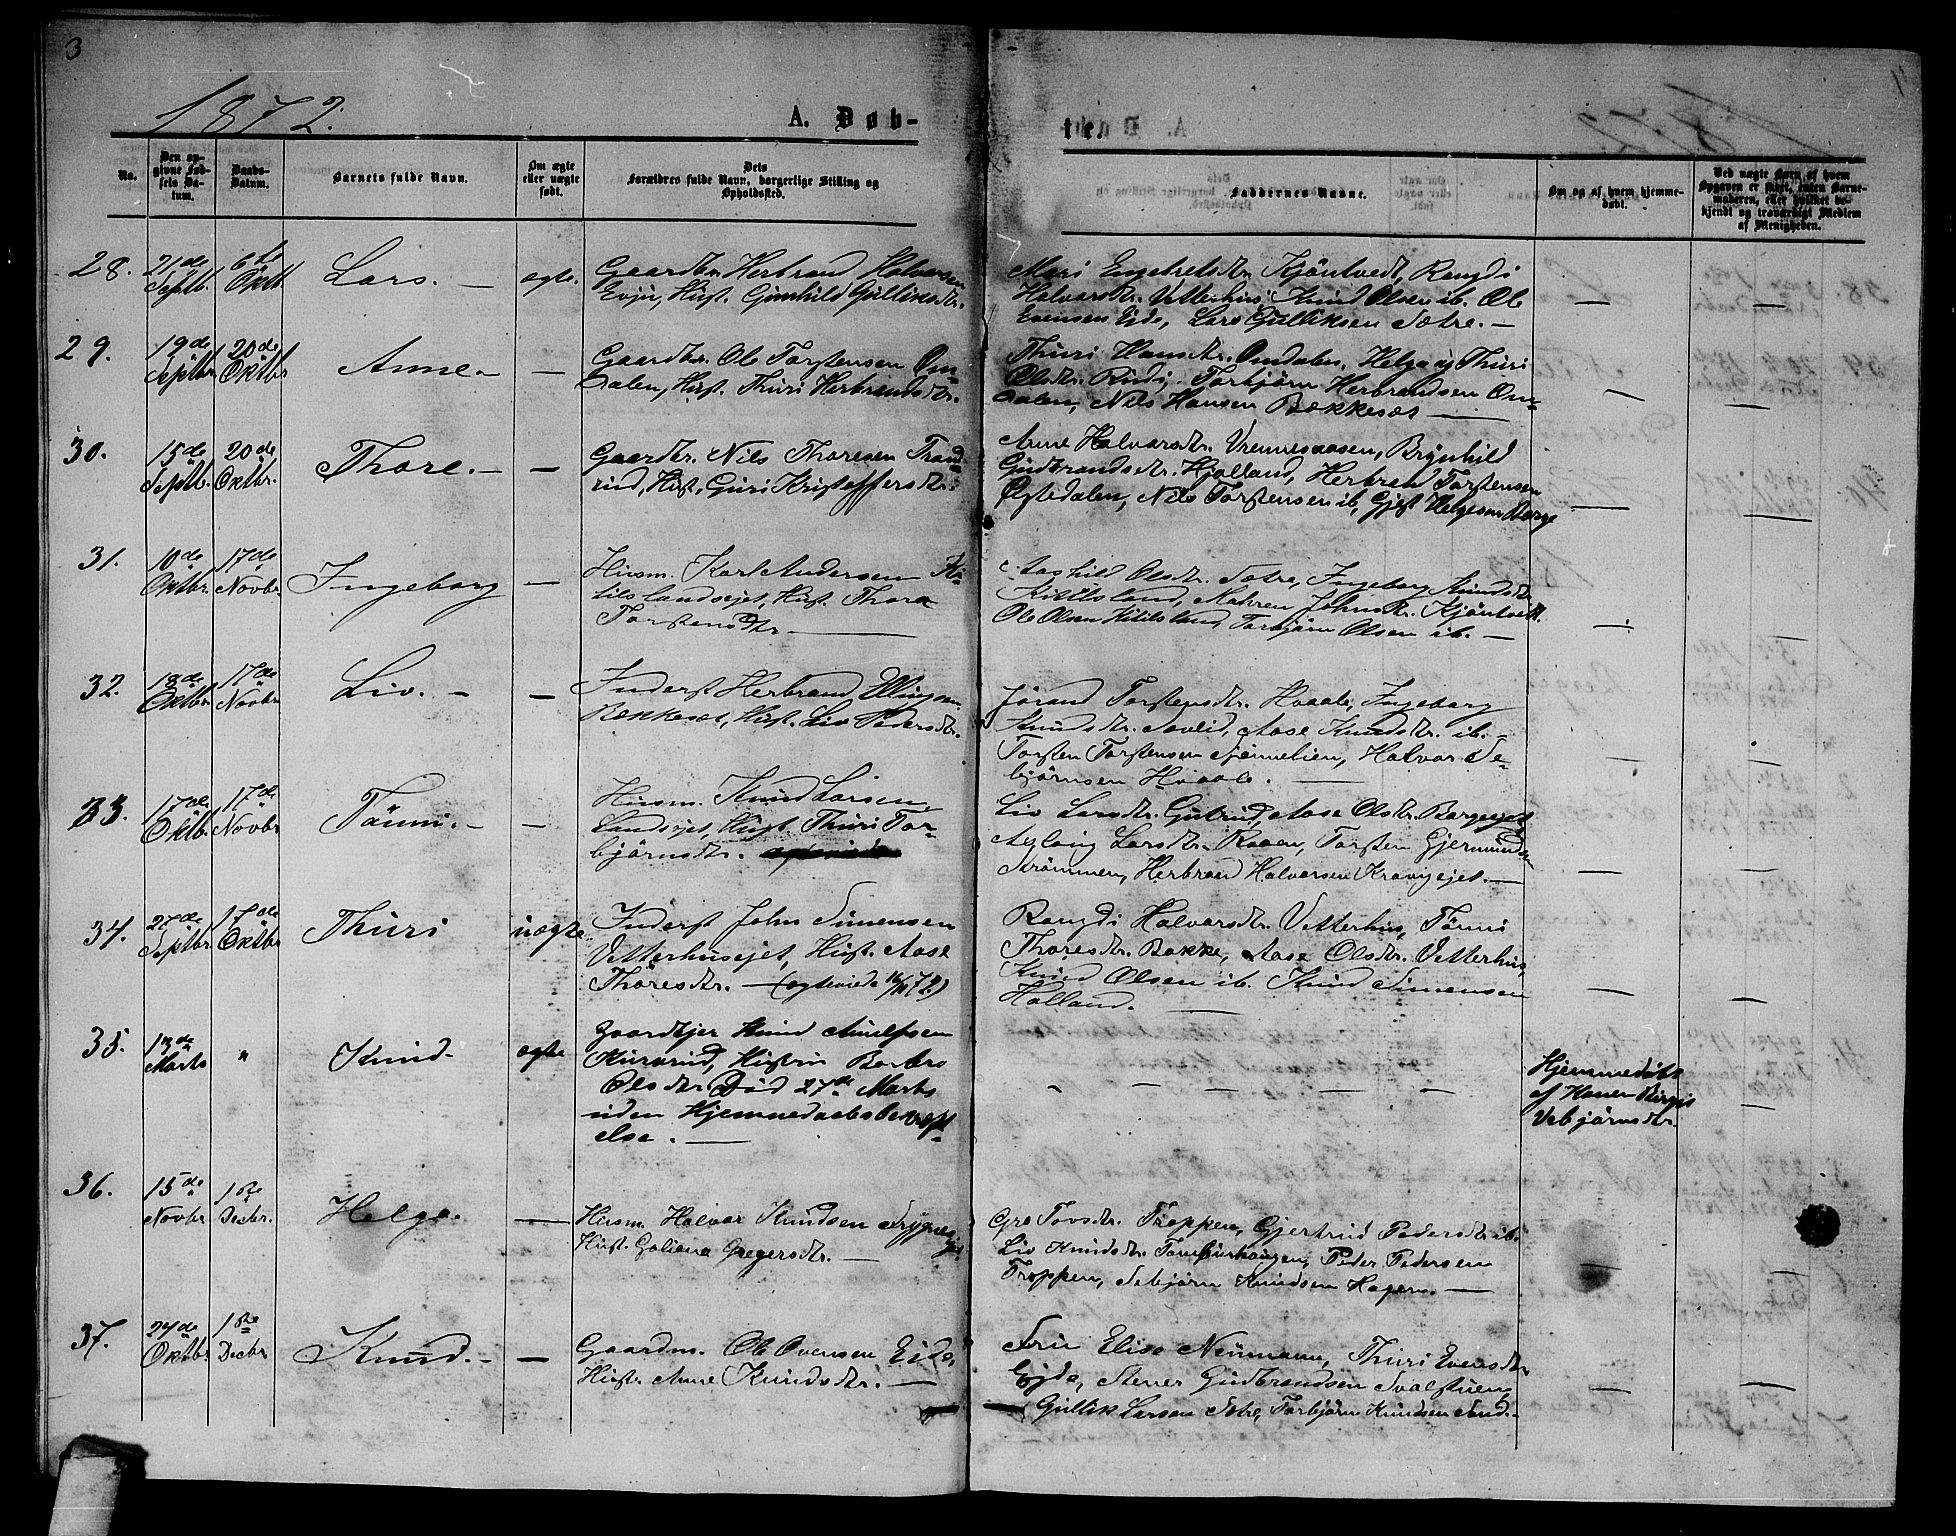 3
1872.
A. Døb-
te.
No.
Den op-
givne Fød-
sels Da-
tum.
Daabs-
Datum.
Barnets fulde Navn.
Om ægte
eller uægte
født.
Dets
Forældres fulde Navn, borgerlige Stilling og
Opholdsted.
Faddernes Navne.
Om og af hvem hjemme-
døbt.
Ved uægte Børn af hvem
Opgaven er skeet, enten Barne-
moderen, eller hvilket be-
kjendt og troværdigt Medlem
af Menigheden.
28.
21de
Septb.
6te
Oktb.
Lars. —
ægte.
Gaardbr. Herbrand Halvorsen
Evju, Hust. Gunhild Gulliksdtr.
Mari Engebretsdtr. Kjöntvedt, Rangdi
Halvorsdtr. Vetterhus, Knud Olsen ib. Ole
Evensen Eide, Lars Gulliksen Sætre. —
—
—
29.
19de
Septbr.
20de
Oktbr.
Anne. —
—
Gaardbr. Ole Torstensen Om-
dalen, Hust. Thuri Herbrandsdtr.
Thuri Hansdtr. Omdalen, Helga og Thuri
Olsdtr. Rudi, Torbjörn Herbrandsen Om-
dalen, Nils Hansen Bækkesæt —
—
—
30.
15de
Septb.
20de
Oktbr.
Thore. —
—
Gaardbr. Nils Thoresen Trand-
rud, Hust. Guri Kristoffersdtr.
Anne Halvorsdtr. Vrennesaasen, Brynhild
Gudbrandsdtr. Hjalland, Herbrand Torstensen
Ögstedalen, Nils Torstensen ib, Gjest Helgesen Berge
—
—
31.
10de
Oktbr.
17de
Novbr.
Ingeborg
—
Husm. Karl Andersen Ki-
tilslandsejet, Hust. Thora
Torstensdtr. —
Aashild Olsdtr. Sætre, Ingeborg Amundsdtr.
Kittilsland, Mahren Johnsdtr. Kjöntvedt.
Ole Olsen Kitilsland, Torbjörn Olsen ib. —
—
—
32.
18de
Oktbr.
17de
Novbr.
Liv. —
—
Inderst Herbrand Ellingsen
Bækkesæt, Hust. Liv Pedersdtr.
Jörand Torstensdtr. Hvaale, Ingeborg
Knudsdtr. Sovlid, Aase Knudsdtr. ib. —
Torsten Torstensen Simelien, Halvor Se-
björnsen Hvaale. —
—
—
33.
17de
Oktb.
17de
Novbr.
Tönni. —
—
Husm. Knud Larsen
Landsejet, Hust. Thuri Tor-
björnsdtr.
Liv Larsdtr. Gulrud, Aase Olsdtr. Borgeejet,
Aslaug Larsdtr. Raaen, Torsten Gjermundsen
Strömmen, Herbrand Halvorsen Kravigejet. —
—
—
34.
27de
Septbr.
17de
Oktbr.
Thuri
uægte
Inderst John Simensen
Vetterhusejet, Hust. Aase
Thoresdtr. — (ægteviede 16/11 72)
Rangdi Halvorsdtr. Vetterhus, Tönni
Thoresdtr. Bakke, Aase Olsdtr. Vetterhus,
Knud Olsen ib. Knud Simensen
Holland. —
—
—
35.
13de
Marts
"
Knud.
ægte
Gaardejer Knud
Hustru Barbro
Olsdtr. Död 27de Marts
uden Hjemmedaabsbekræft-
else. —
Hjemmedöbt
af Konen Birgit
Vebjörnsdtr.
—
36.
15de
Novbr
1ste
Decbr.
Helge.
—
Husm. Halvor Knudsen
Hust. Goliena Gregersdtr. —
Gro Tovsdtr. Troppen, Gjertrud Pedersdtr. ib.
Liv Knudsdtr. Tamburhaugen, Peder Pedersen
Troppen, Sebjörn Knudsen Hagen. —
—
—
37.
24de
Oktbr.
1ste
Decbr
Knud. —
—
Gaardm. Ole Ovensen Eide,
Hust. Anne Knudsdtr. —
Fru Elise Neumann, Thuri Evensdtr.
Ejde, Stener Gudbrandsen Svalstuen,
Gullik Larsen Sætre, Torbjörn Knudsen Sand. —
—
—